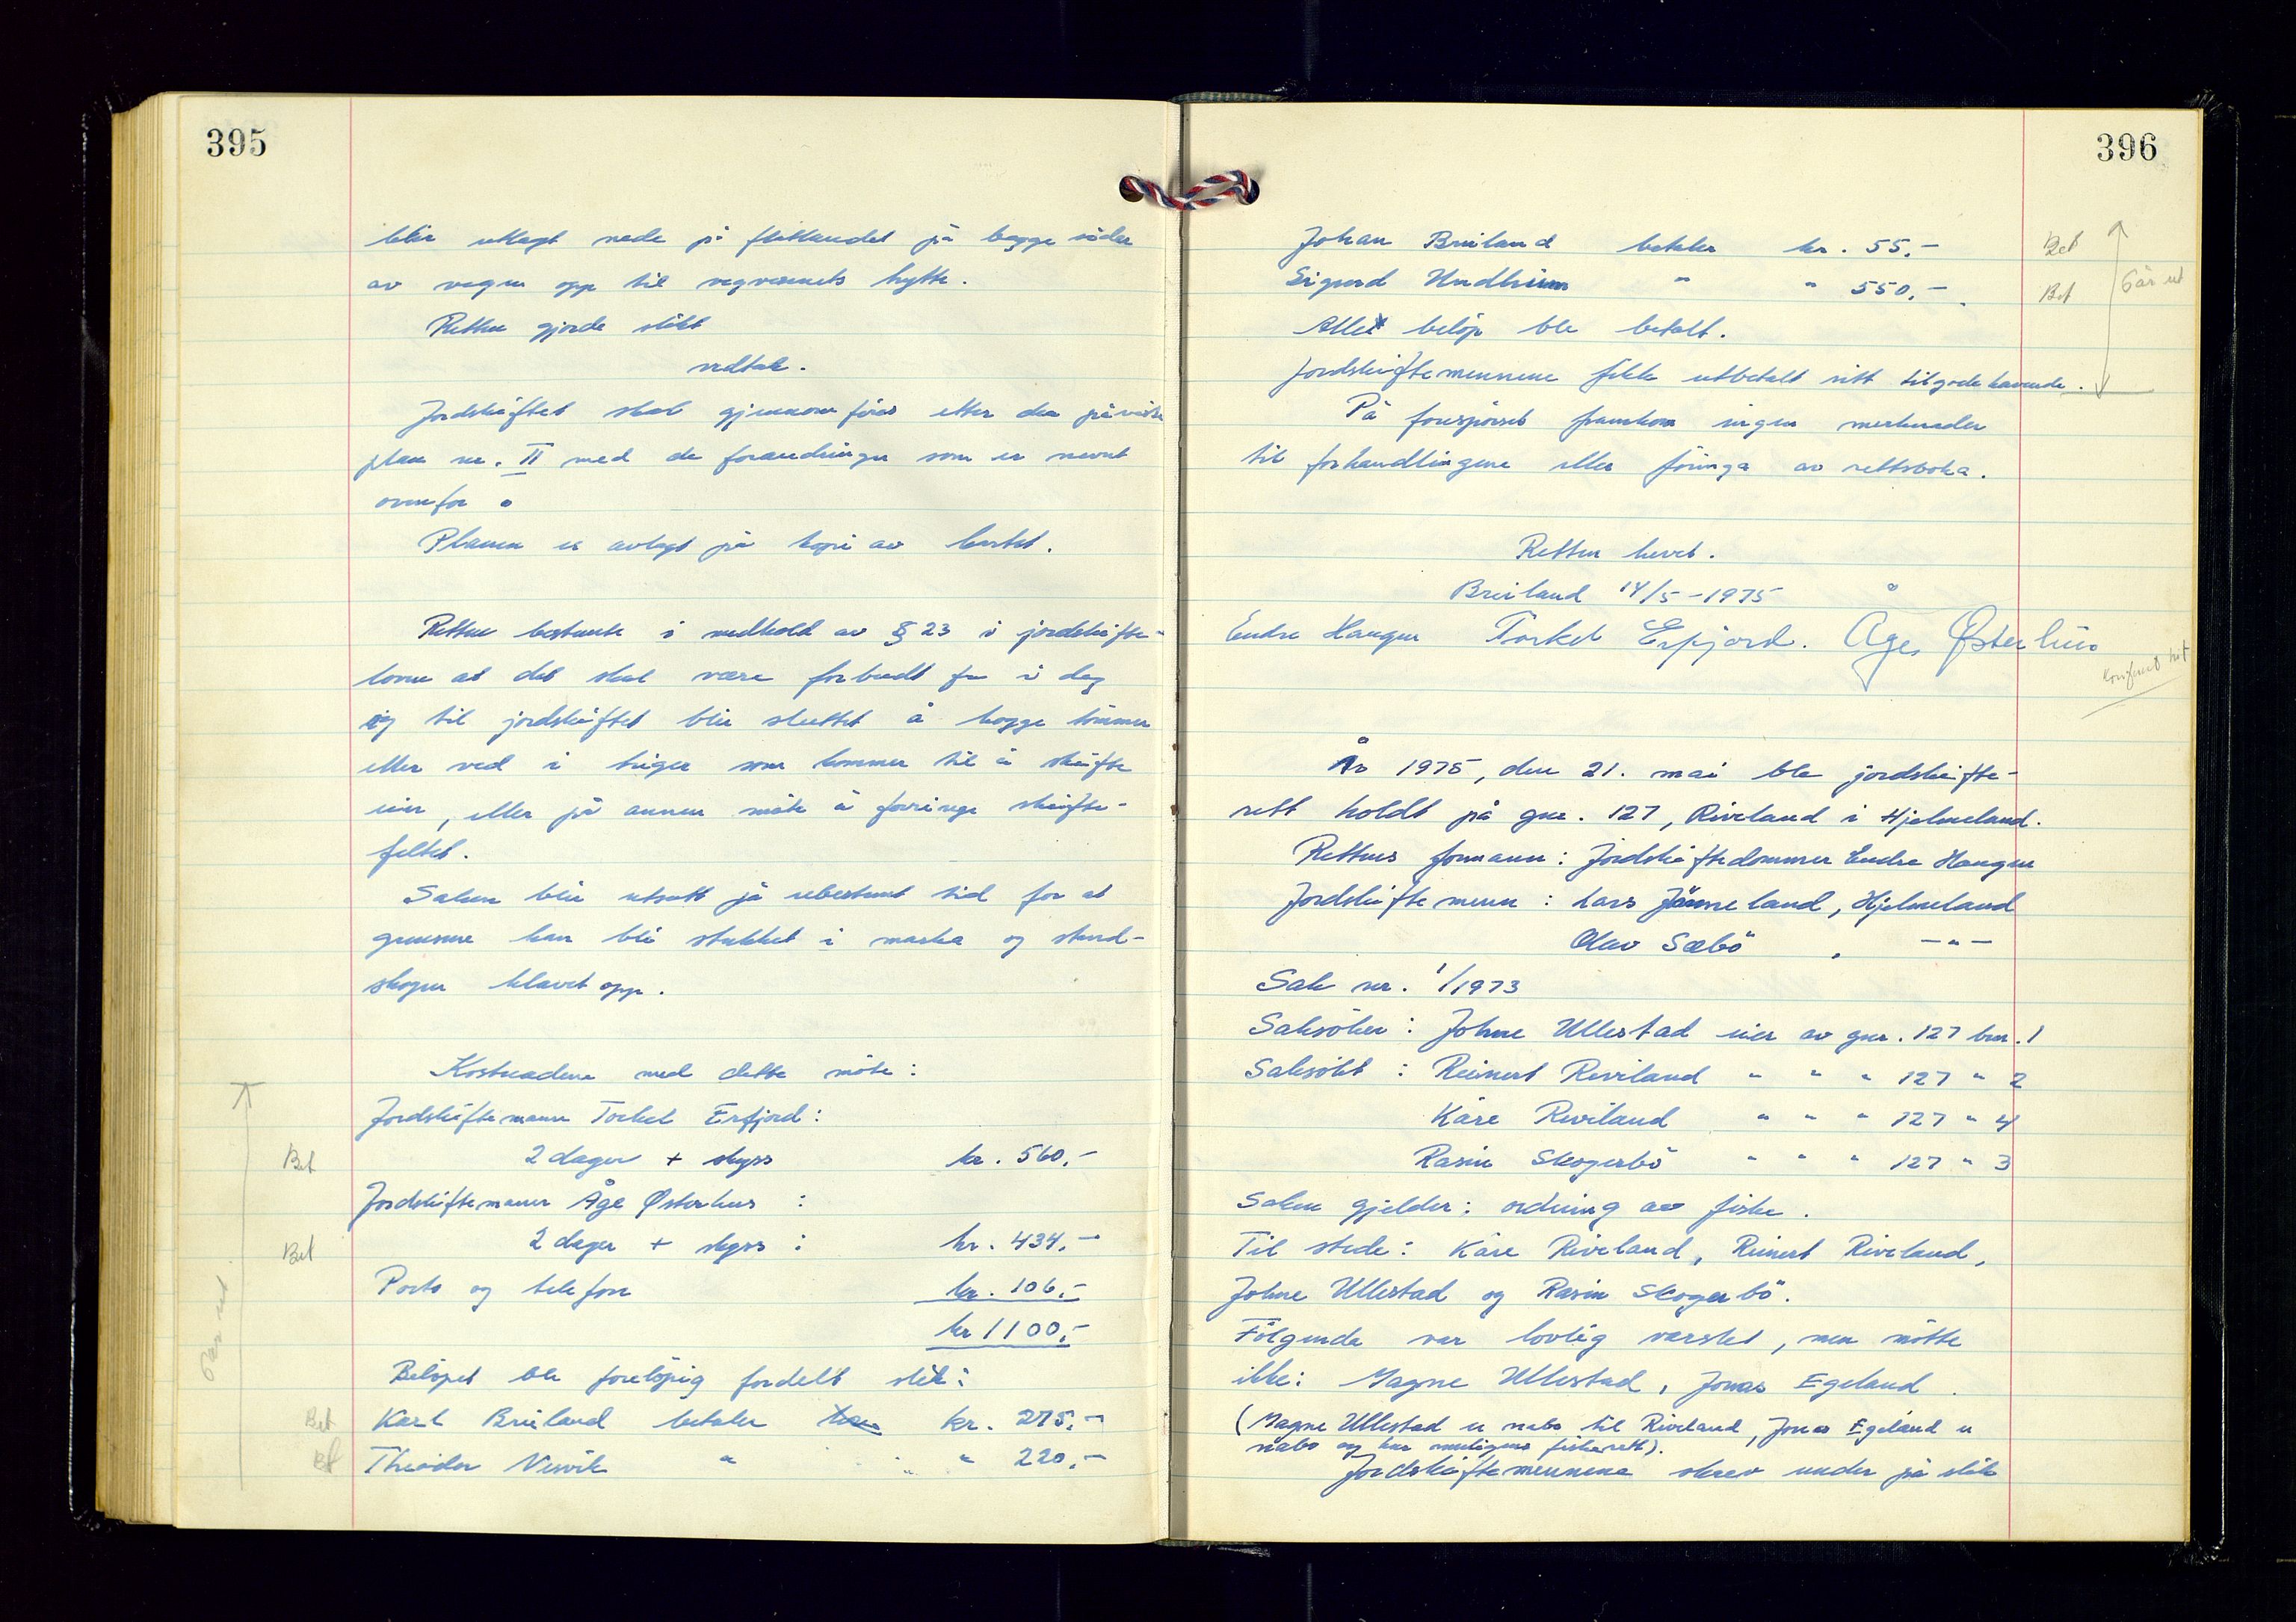 395
blir utlagt nede på flatlandet på begge sider
av vegen opp til vegvesenets hytte.
Retten gjorde slikt
vedtak.
Jordskiftet skal gjennomföres etter den påviste
plan nr. II med de forandringer som er nevnt
ovenfor.
Planen er avlagt på kopi av kartet.
Retten bestemte i medhold av § 23 i jordskifte-
loven at det skal være forbudt fra i dag
og til jordskiftet blir sluttet å hogge tömmer
eller ved i teiger som kommer til å skifte
eier, eller på annen måte å forringe skifte-
feltet.
Saken blir utsatt på ubestemt tid for at
grensene kan bli stukket i marka og stand-
skogen klavet opp.
Kostnadene med dette möte:
Jordskiftemann Torkel Erfjord:
Bet 2 dager + skyss kr. 560.-
Jordskiftemann Åge Østerhus :
Bet 2 dager + skyss : kr. 434.-
Porto og telefon kr. 106.-
kr 1100.-
Går ut
Belöpet ble forelöpig fordelt slik:
Bet Karl Breiland betaler kr. 275.-
Bet Theodor Nesvik " " 220.-
396
Johan Breiland betaler kr. 55.- Bet
Sigurd Undheim " " 550.- Bet
Går ut
Alle belöp ble betalt.
Jordskiftemennene fikk utbetalt sitt tilgodehavende.
På forespörsel framkom ingen merknader
til forhandlingene eller föringa av rettsboka.
Retten hevet.
Breiland 14/5-1975
Endre Haugen Torkel Erfjord. Åge Østerhus
Konferert hit
År 1975, den 21. mai ble jordskifte-
rett holdt på gnr. 127, Riveland i Hjelmeland.
Rettens formann: Jordskiftedommer Endre Haugen
Jordskiftemenn: Lars Jönneland, Hjelmeland
Olav Sæbö , - " -
Sak nr. 1/1973
Saksöker: Johne Ullestad eier av gnr. 127 bnr. 1
Saksökt : Reinert Riveland " " " 127 " 2
Kåre Riveland " " " 127 " 4
Rasin Skogerbö " " " 127 " 3
Saken gjelder: ordning av fiske.
Til stede: Kåre Riveland, Reinert Riveland,
Johne Ullestad og Rasin Skogerbö.
Fölgende var lovlig varslet, men mötte
ikke: Magne Ullestad, Jonas Egeland.
(Magne Ullestad er nabo til Riveland, Jonas Egeland er
nabo og har muligens fiskerett).
Jordskiftemennene skrev under på slik